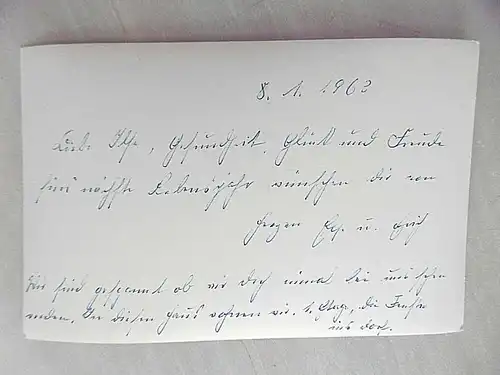 8. 1. 1963
Liebe Ilse, Gesundheit, Glück und Freude
fürs nächste Lebensjahr wünschen dir von
Herzen u. Erich
Wir sind gespannt ob wir doch einmal bei
In diesem Haus wohnen wir. 1. Etage, die
ins Dorf.